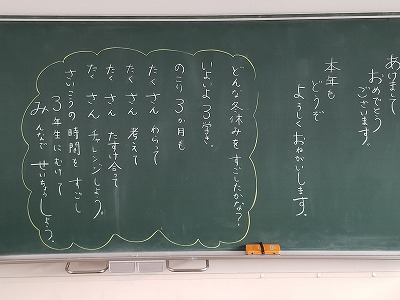 あけまして
おめでとう
ございます。
本年も
どうぞ
よろしくおねがいします。
どんな冬休みをすごしたかな?
いよいよ3学き。
のこり3か月も
たくさんわらって
たくさん考えて
たくさんたすけ合って
たくさんチャレンジしよう。
さいこうの時間をすごし
3年生にむけて
みんなでせいちょうしよう。